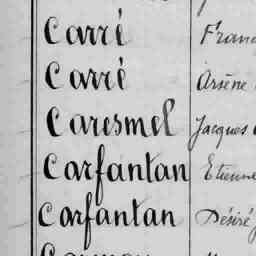 Carré Fran
Carré Arsène
Caresmel Jacques
Carfantan Etienne
Carfantan Désiré